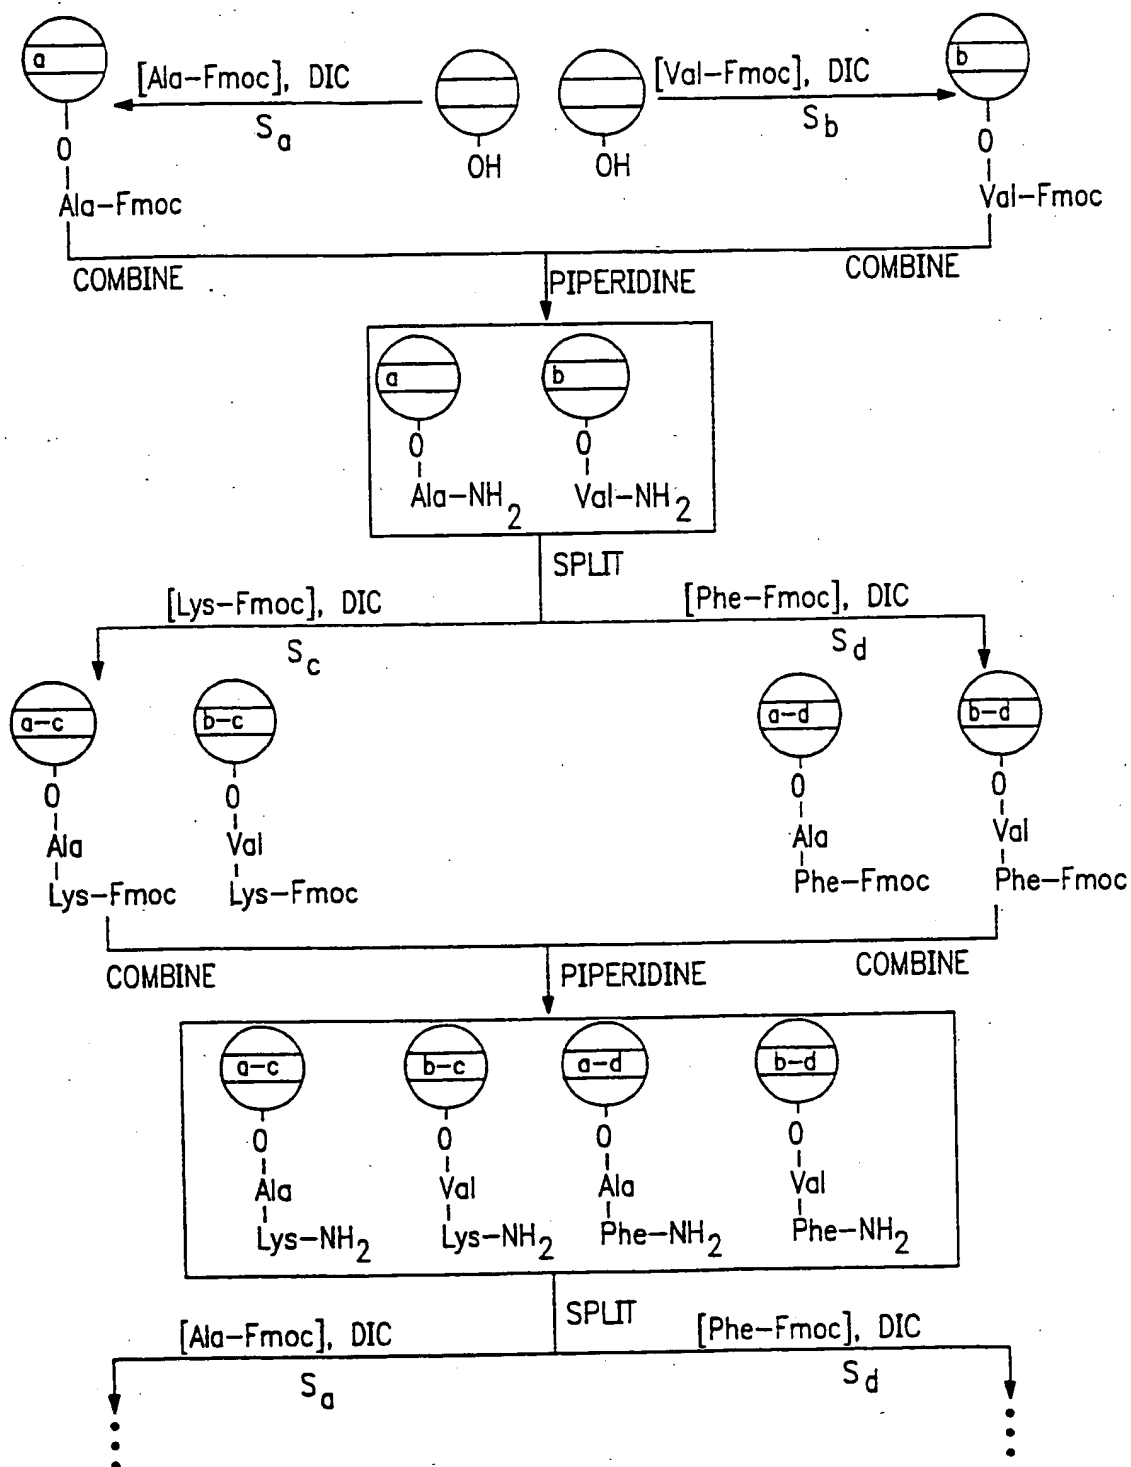 a
[Ala-Fmoc], DIC
S_a
OH
OH
[Val-Fmoc], DIC
S_b
b
O
Ala-Fmoc
O
Val-Fmoc
COMBINE
PIPERIDINE
COMBINE
a
b
O
O
Ala-NH2
Val-NH2
SPLIT
[Lys-Fmoc], DIC
S_c
[Phe-Fmoc], DIC
S_d
a-c
b-c
a-d
b-d
O
O
O
O
Ala
Val
Ala
Val
Lys-Fmoc
Lys-Fmoc
Phe-Fmoc
Phe-Fmoc
COMBINE
PIPERIDINE
COMBINE
a-c
b-c
a-d
b-d
O
O
O
O
Ala
Val
Ala
Val
Lys-NH2
Lys-NH2
Phe-NH2
Phe-NH2
SPLIT
[Ala-Fmoc], DIC
S_a
[Phe-Fmoc], DIC
S_d